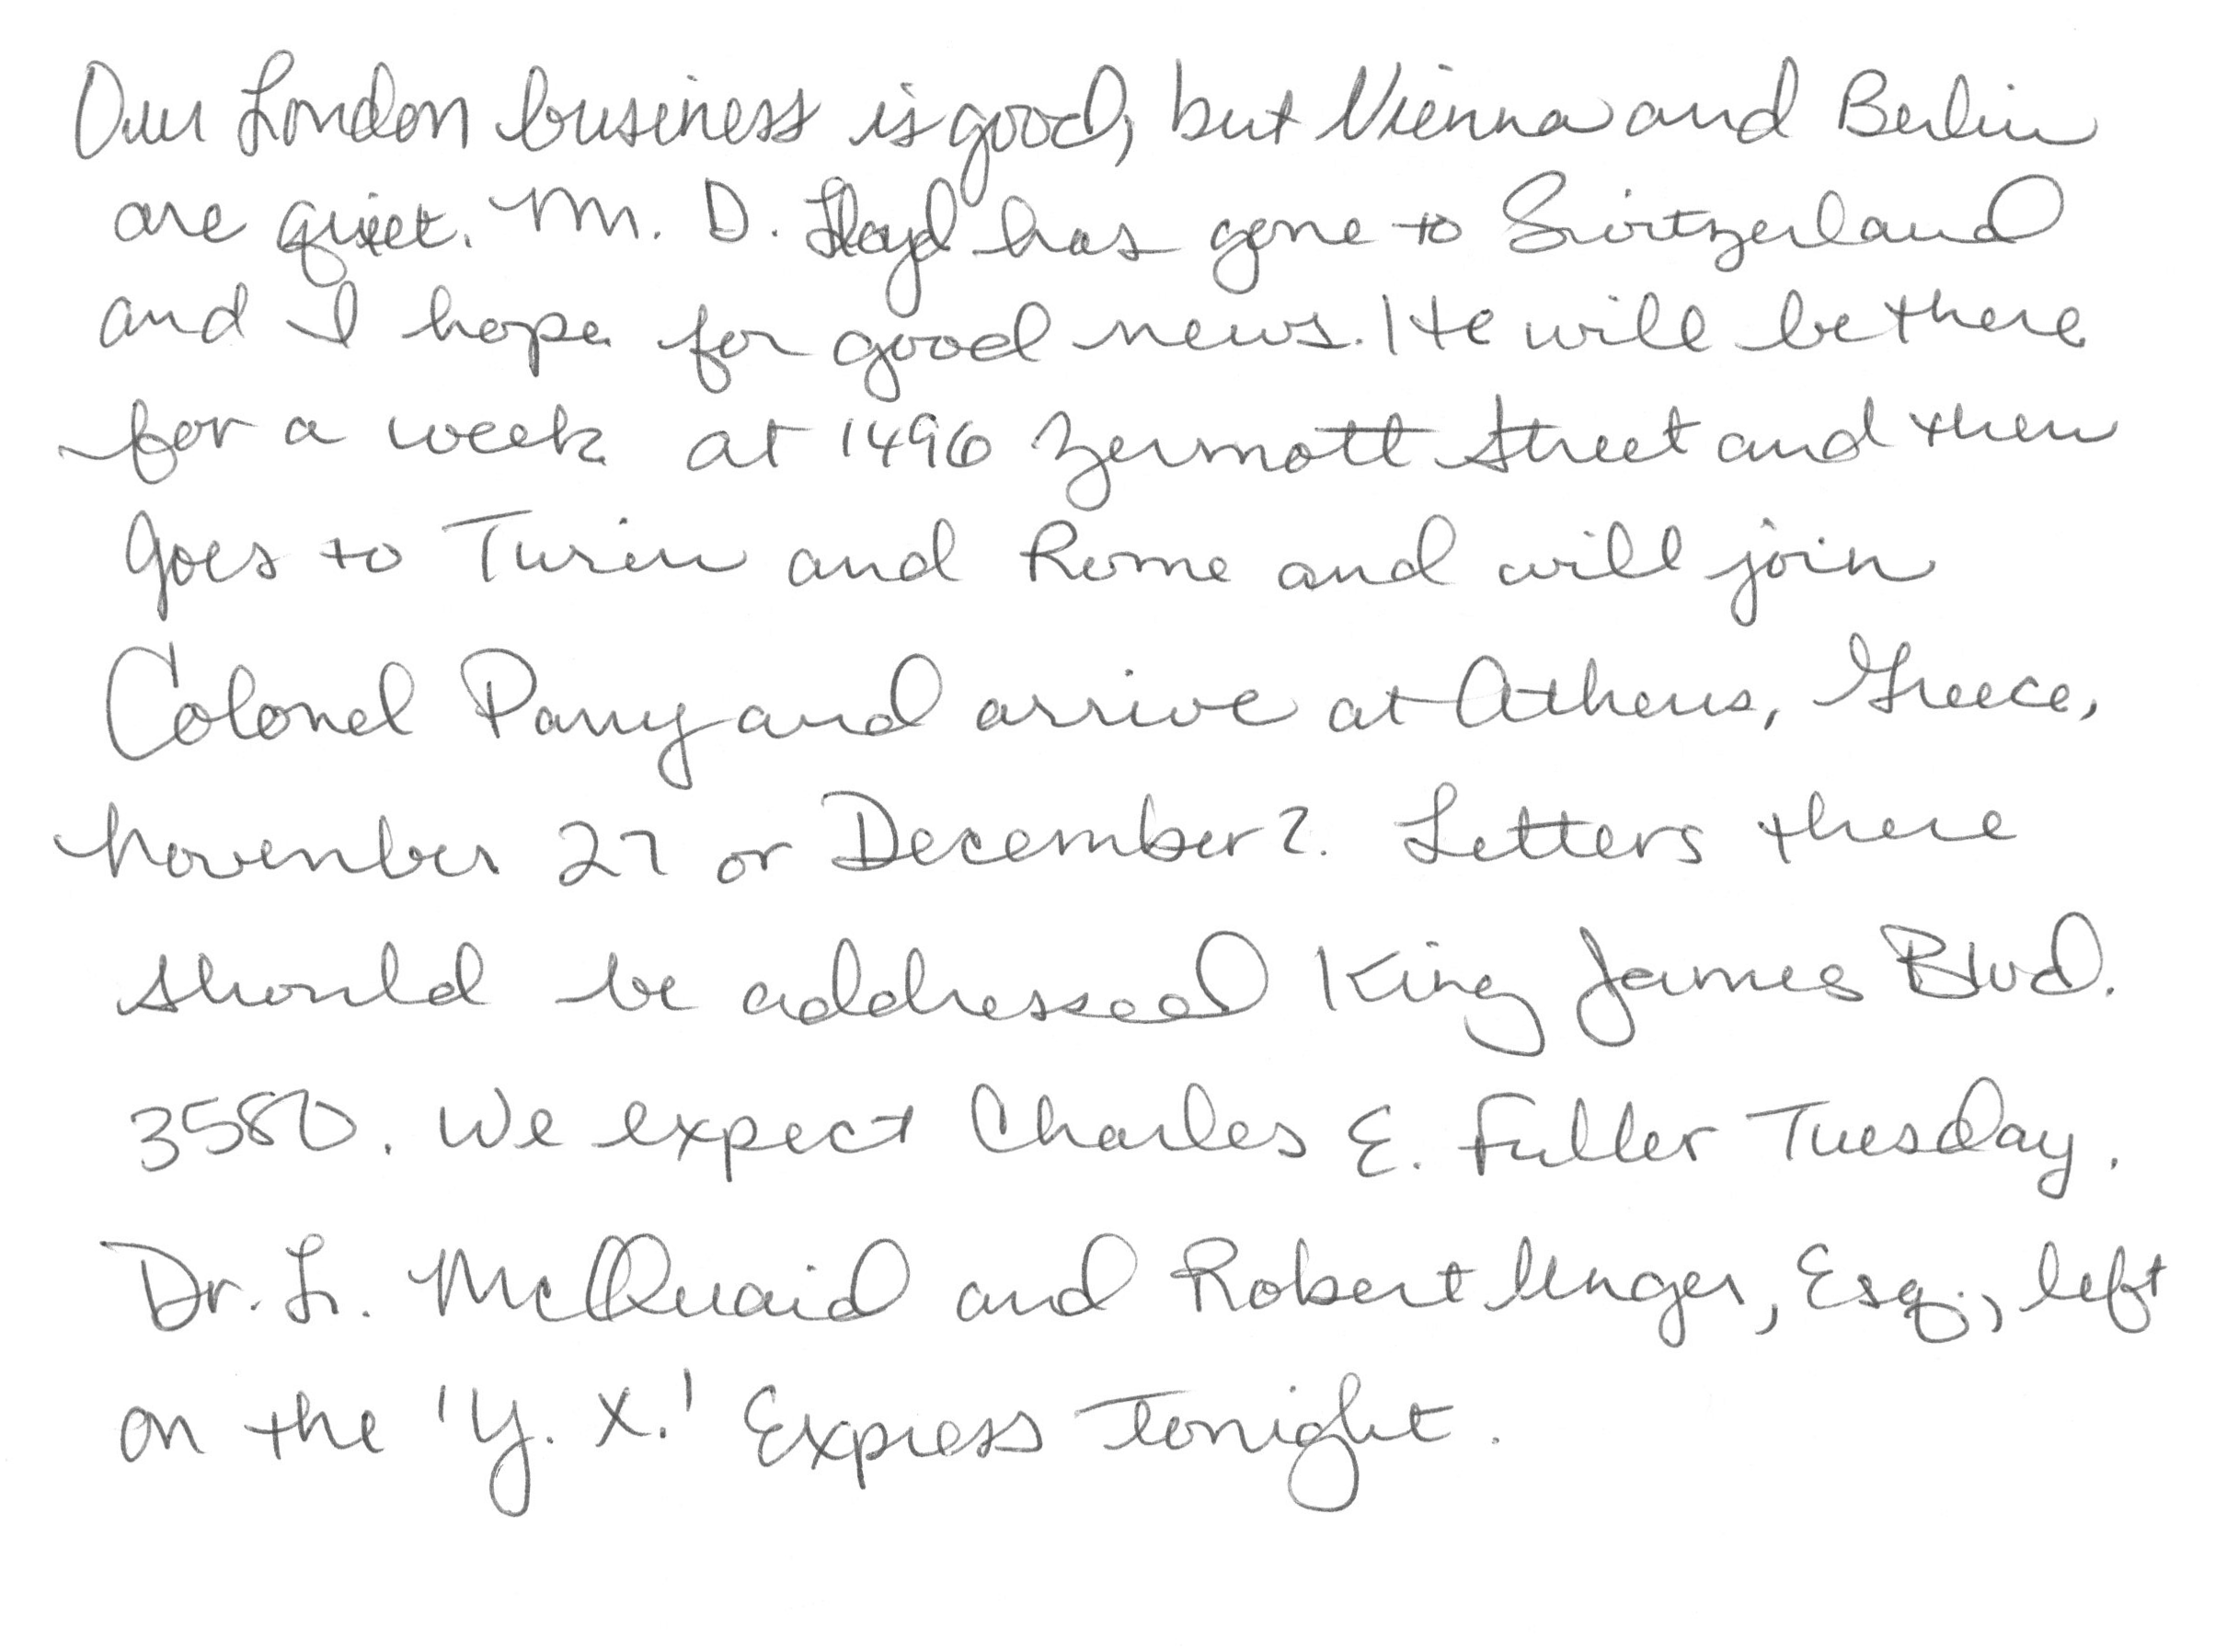 Our London business is good, but Vienna and Berlin
are quiet. M. D. Lloyd has gone to Switzerland
and I hope for good news. He will be there
for a week at 1496 Zermott Street and then
Goes to Turin and Rome and will join
Colonel Parry and arrive at Athens, Greece,
November 27 or December 2. Letters there
should be addressed King James Blvd.
3580. We expect Charles E. Fuller Tuesday.
Dr. L. McQuaid and Robert Unger, Esq., left
on the 'Y. X.' Express Tonight.